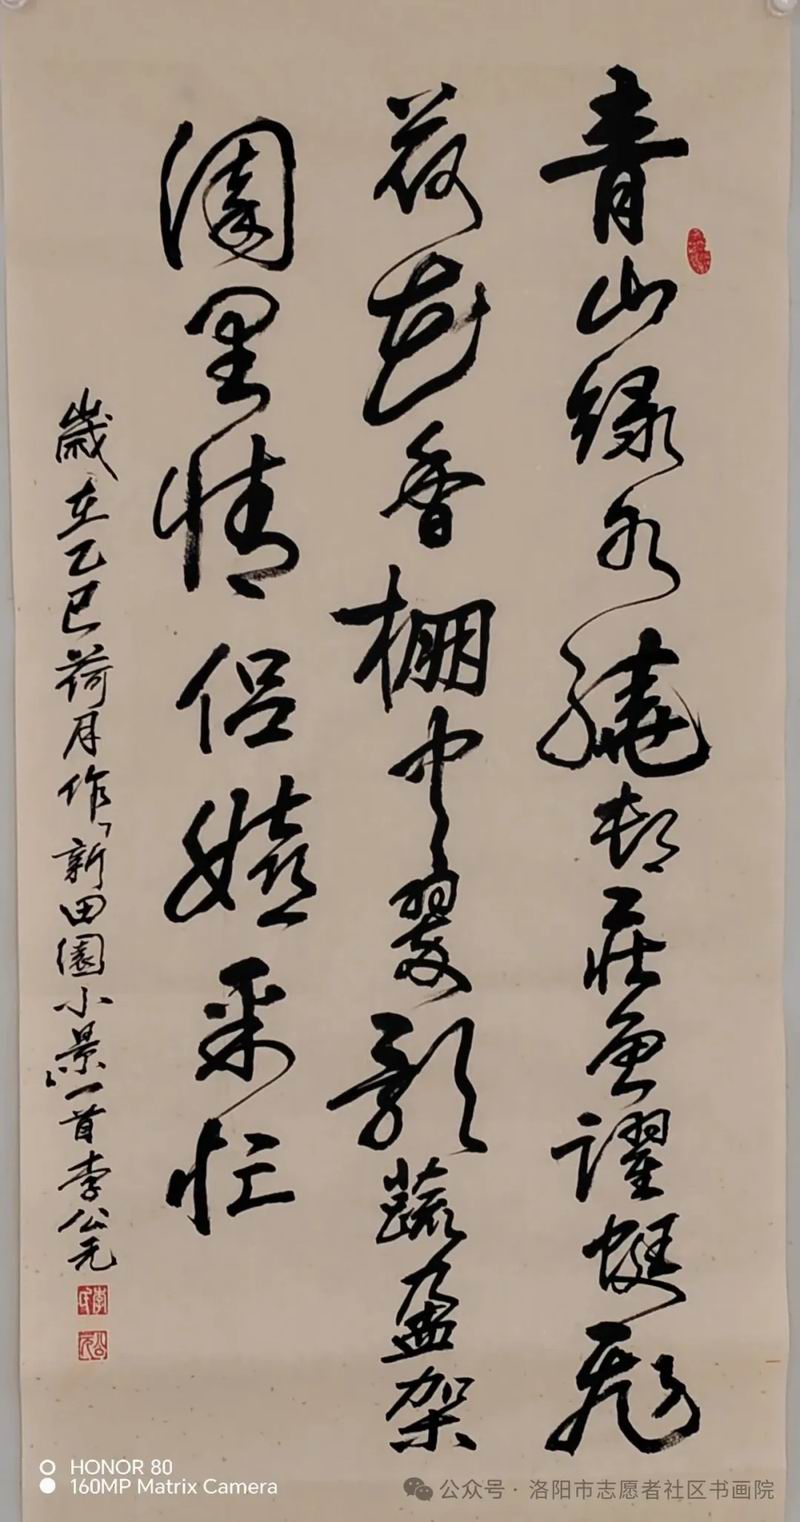 青山绿水绕村庄鱼躍蜓飛
荷花香棚中翠影蔬盈架
園里情侣嬉采忙
歲在乙巳荷月作「新田園小景」一首李公元
李氏
公元
HONOR 80
160MP Matrix Camera
公众号·洛阳市志愿者社区书画院